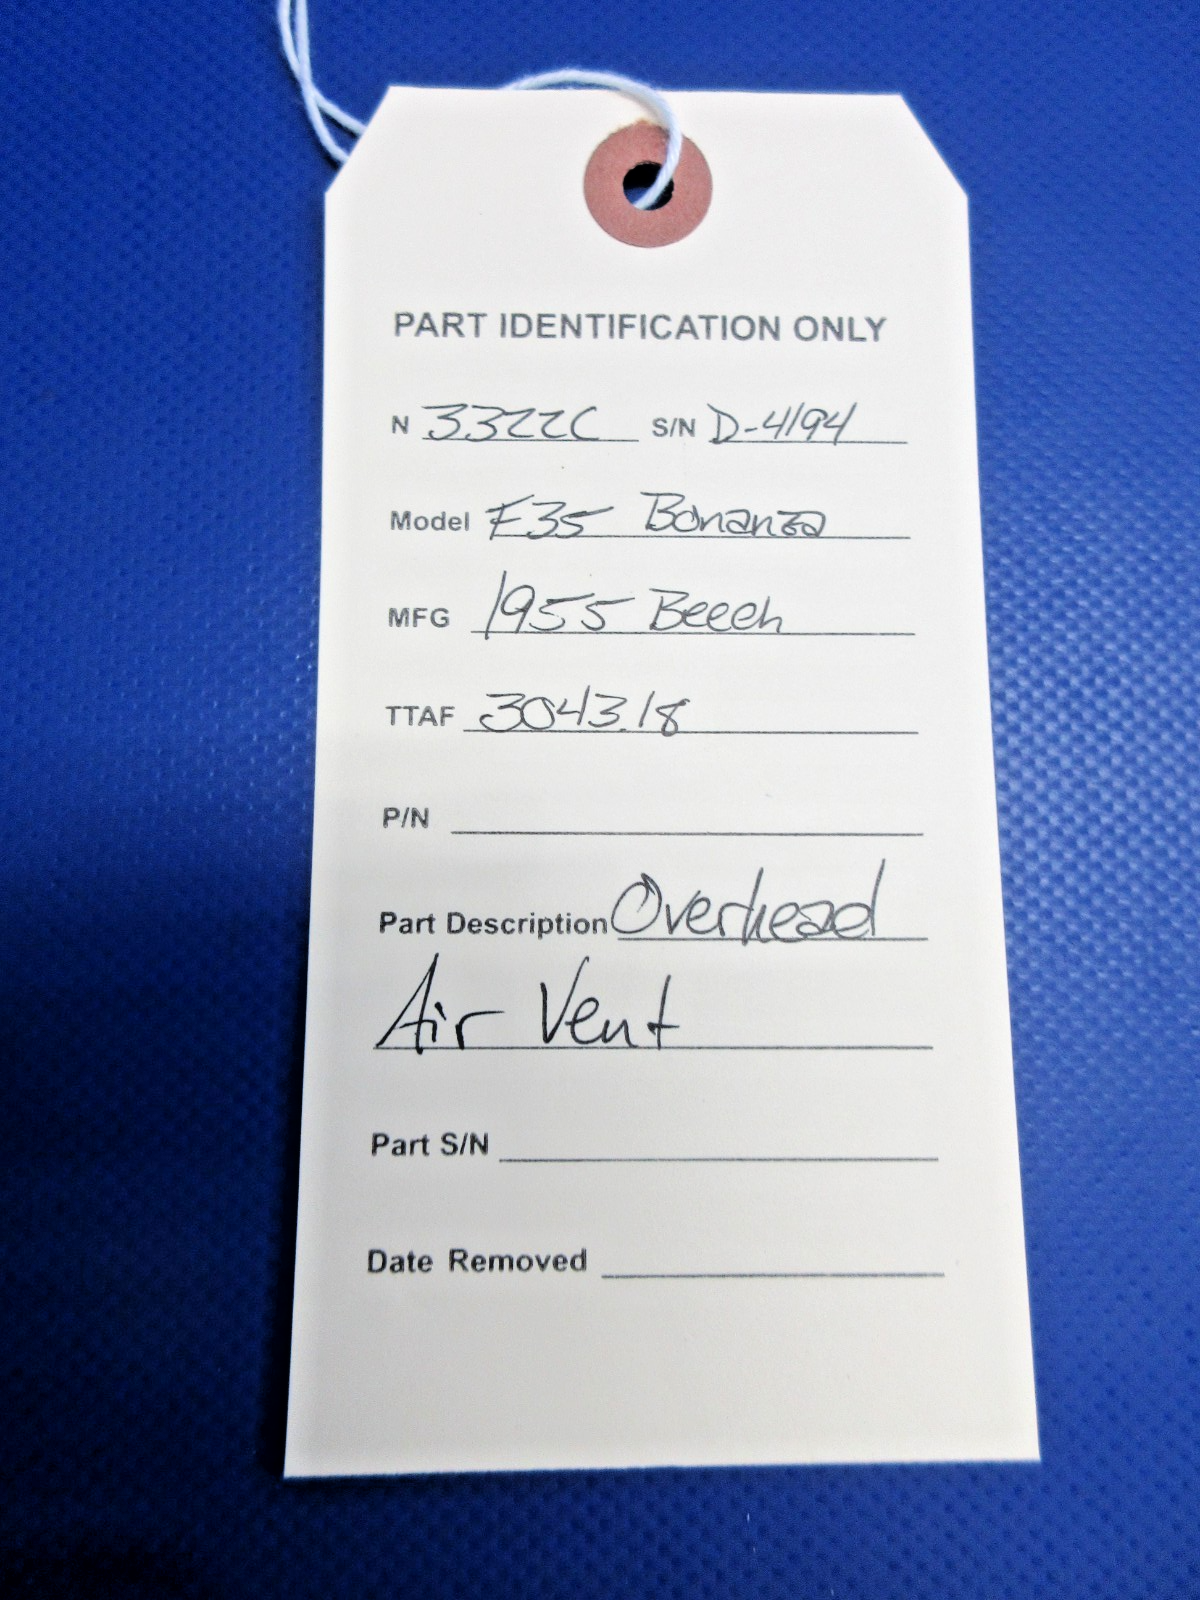 PART IDENTIFICATION ONLY
N 3322C S/N D-4194
Model F35 Bonanza
MFG 1955 Beech
TTAF 3043.18
P/N
Part Description Overhead
Air Vent
Part S/N
Date Removed